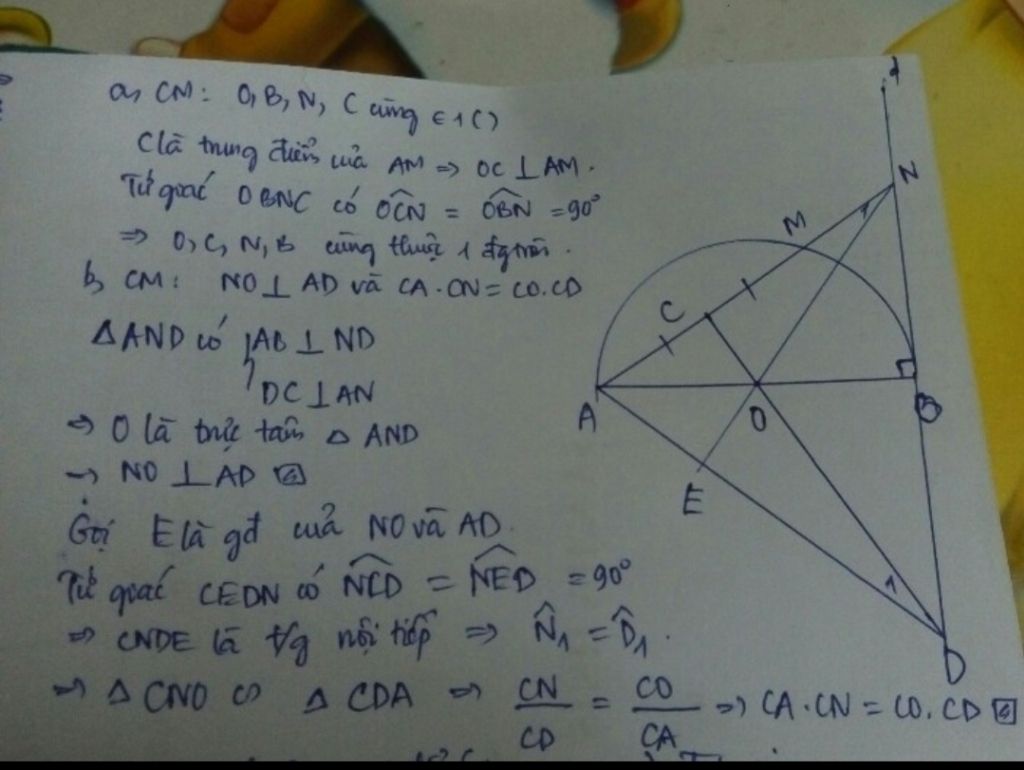 a, CM: O, B, N, C cùng ∈ 1 ( )
C là trung điểm của AM => OC ⊥ AM.
Tứ giác OBNC có OCN = OBN = 90°
=> O, C, N, B cùng thuộc 1 đg tròn.
b, CM: NO ⊥ AD và CA.CN = CO.CD
Δ AND có { AB ⊥ ND
DC ⊥ AN
=> O là trực tâm Δ AND
-> NO ⊥ AD
Gọi E là gđ của NO và AD.
Tứ giác CEDN có NCD = NED = 90°
=> CNDE là t/g nội tiếp => N̂1 = D̂1.
=> Δ CNO ∽ Δ CDA => CN/CD = CO/CA => CA.CN = CO.CD
N
1
M
C
A
O
B
E
1
D